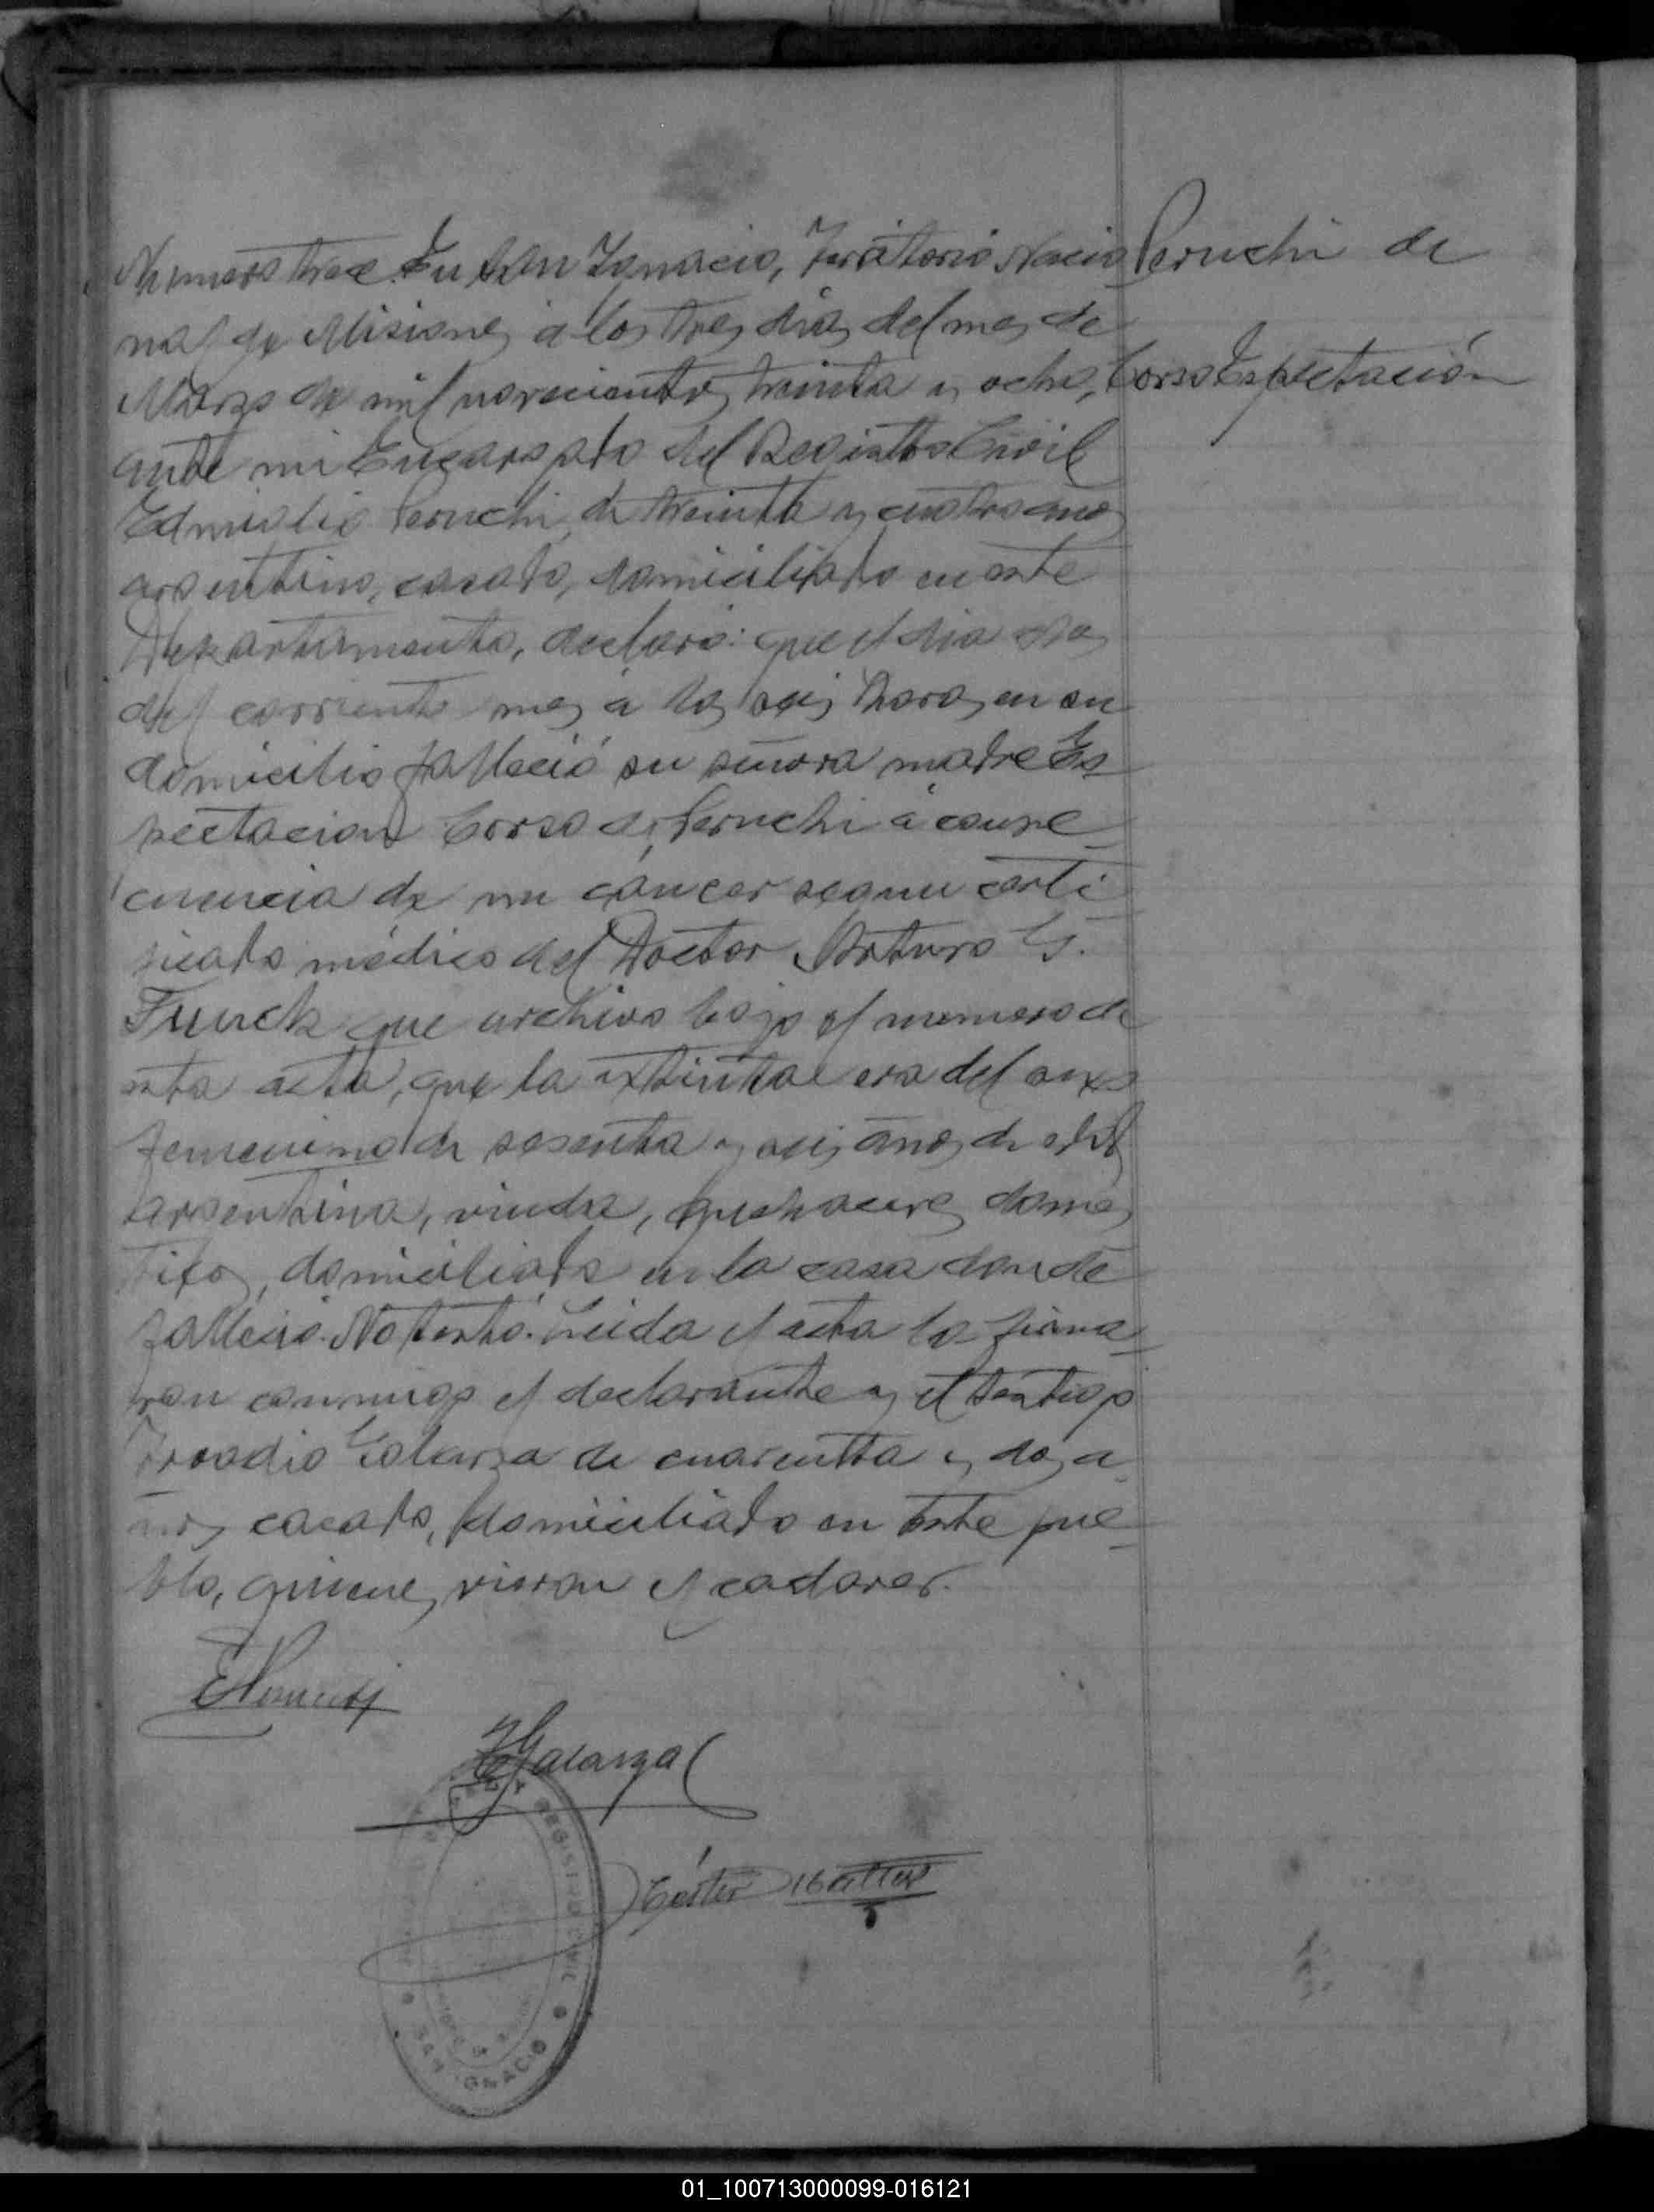 Numero trece. En San Ignacio, Territorio Nacio
Peruchi de
nal de Misiones a los tres dias del mes de
Marzo de mil novecientos treinta y ocho,
Corso Espectación
ante mi Encargado del Registro Civil
Peruchi, de treinta y cuatro años
argentino, casado, domiciliado en este
Departamento, declaró: que el dia dos
del corriente mes a las seis horas, en su
domicilio falleció su señora madre Es
pectacion Corso de Peruchi a conse
cuencia de un cáncer segun certi
ficado médico del Doctor Arturo G.
Funck que archivo bajo el numero de
esta acta, que la extinta era del sexo
femenino de sesenta y seis años de edad
argentina, viuda, quehaceres domes
ticos, domiciliada en la casa donde
falleció. No testó. Leida el acta la firma
ron conmigo el declarante y el testigo
Galarza de cuarenta y dos a
ños, casado, domiciliado en este pue
blo, quienes vieron el cadaver.
Galarza
REGISTRO CIVIL
SAN IGNACIO
01_100713000099-016121